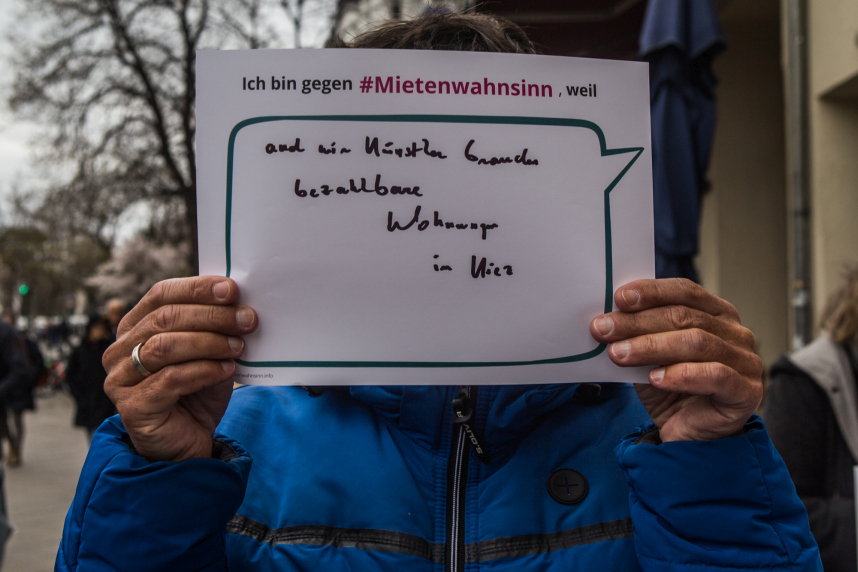 Ich bin gegen #Mietenwahnsinn , weil
auch wir Künstler brauchen
bezahlbare
Wohnungen
im Kiez
wahnsinn.info